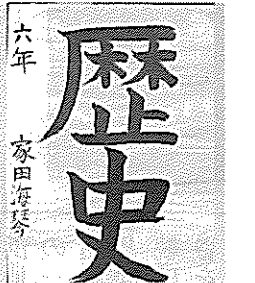 歴史
六年 家田海琴